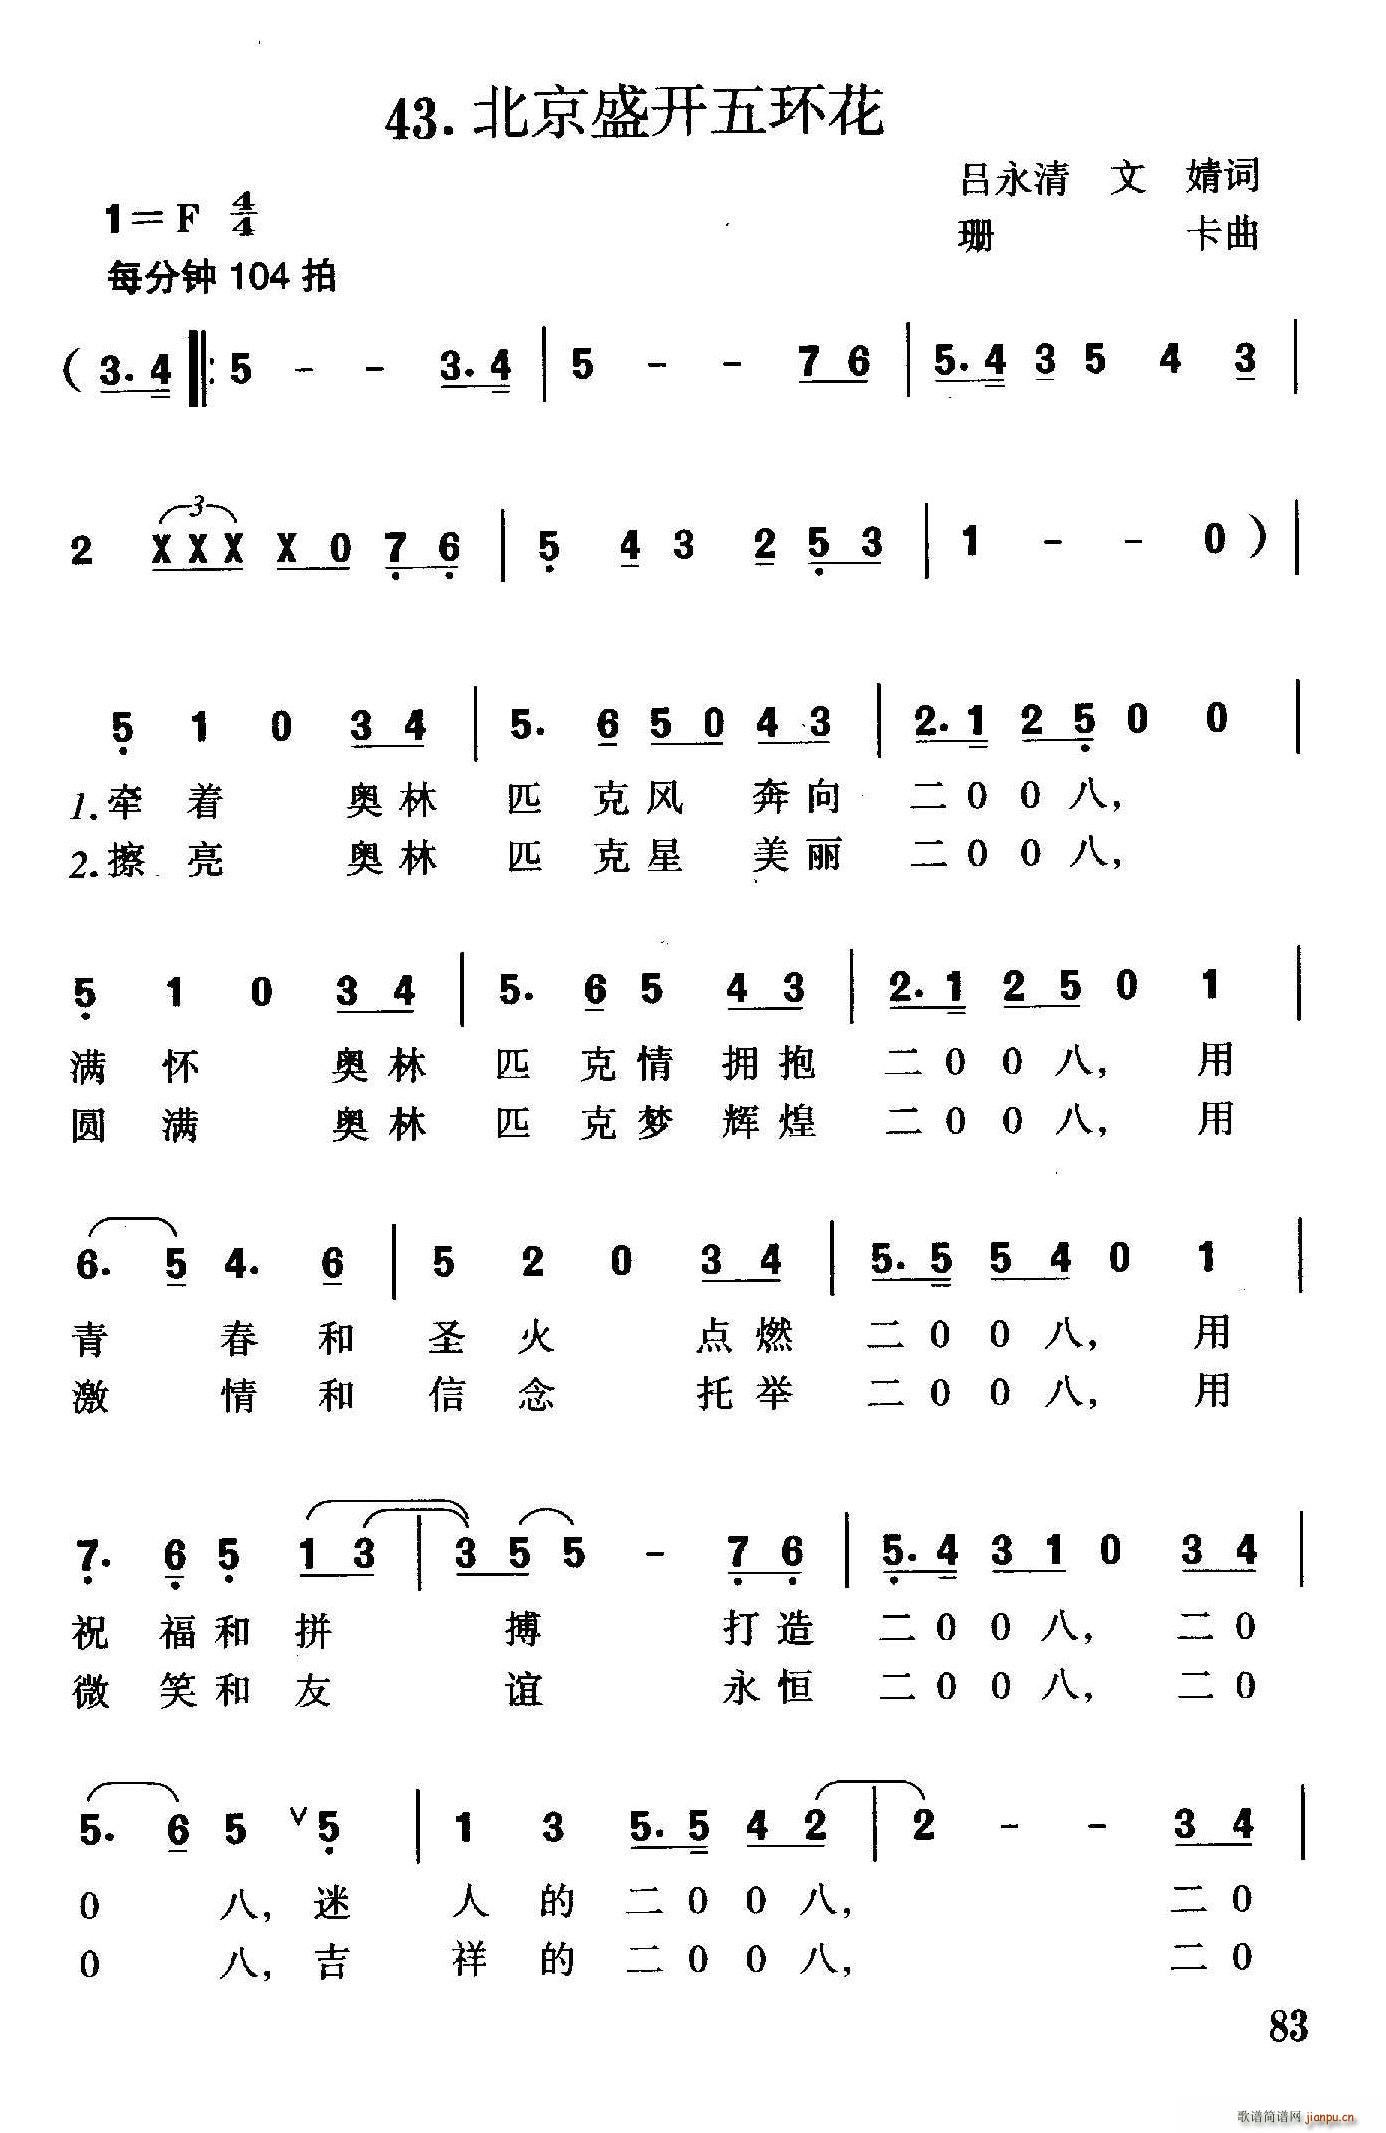 43. 北京盛开五环花
吕永清 文 婧词
1=F 4/4
珊 卡曲
每分钟 104 拍
( 3. 4 ‖: 5 - - 3. 4 | 5 - - 7 6 | 5. 4 3 5 4 3 |
3
2 X X X X 0 7 6 | 5 4 3 2 5 3 | 1 - - 0 ) |
5 1 0 3 4 | 5. 6 5 0 4 3 | 2. 1 2 5 0 0 |
1. 牵 着 奥 林 匹 克 风 奔 向 二 0 0 八,
2. 擦 亮 奥 林 匹 克 星 美 丽 二 0 0 八,
5 1 0 3 4 | 5. 6 5 4 3 | 2. 1 2 5 0 1 |
满 怀 奥 林 匹 克 情 拥 抱 二 0 0 八, 用
圆 满 奥 林 匹 克 梦 辉 煌 二 0 0 八, 用
6. 5 4. 6 | 5 2 0 3 4 | 5. 5 5 4 0 1 |
青 春 和 圣 火 点 燃 二 0 0 八, 用
激 情 和 信 念 托 举 二 0 0 八, 用
7. 6 5 1 3 | 3 5 5 - 7 6 | 5. 4 3 1 0 3 4 |
祝 福 和 拼 搏 打 造 二 0 0 八, 二 0
微 笑 和 友 谊 永 恒 二 0 0 八, 二 0
5. 6 5 ∨ 5 | 1 3 5. 5 4 2 | 2 - - 3 4 |
0 八, 迷 人 的 二 0 0 八, 二 0
0 八, 吉 祥 的 二 0 0 八, 二 0
83
歌谱简谱网 jianpu.cn